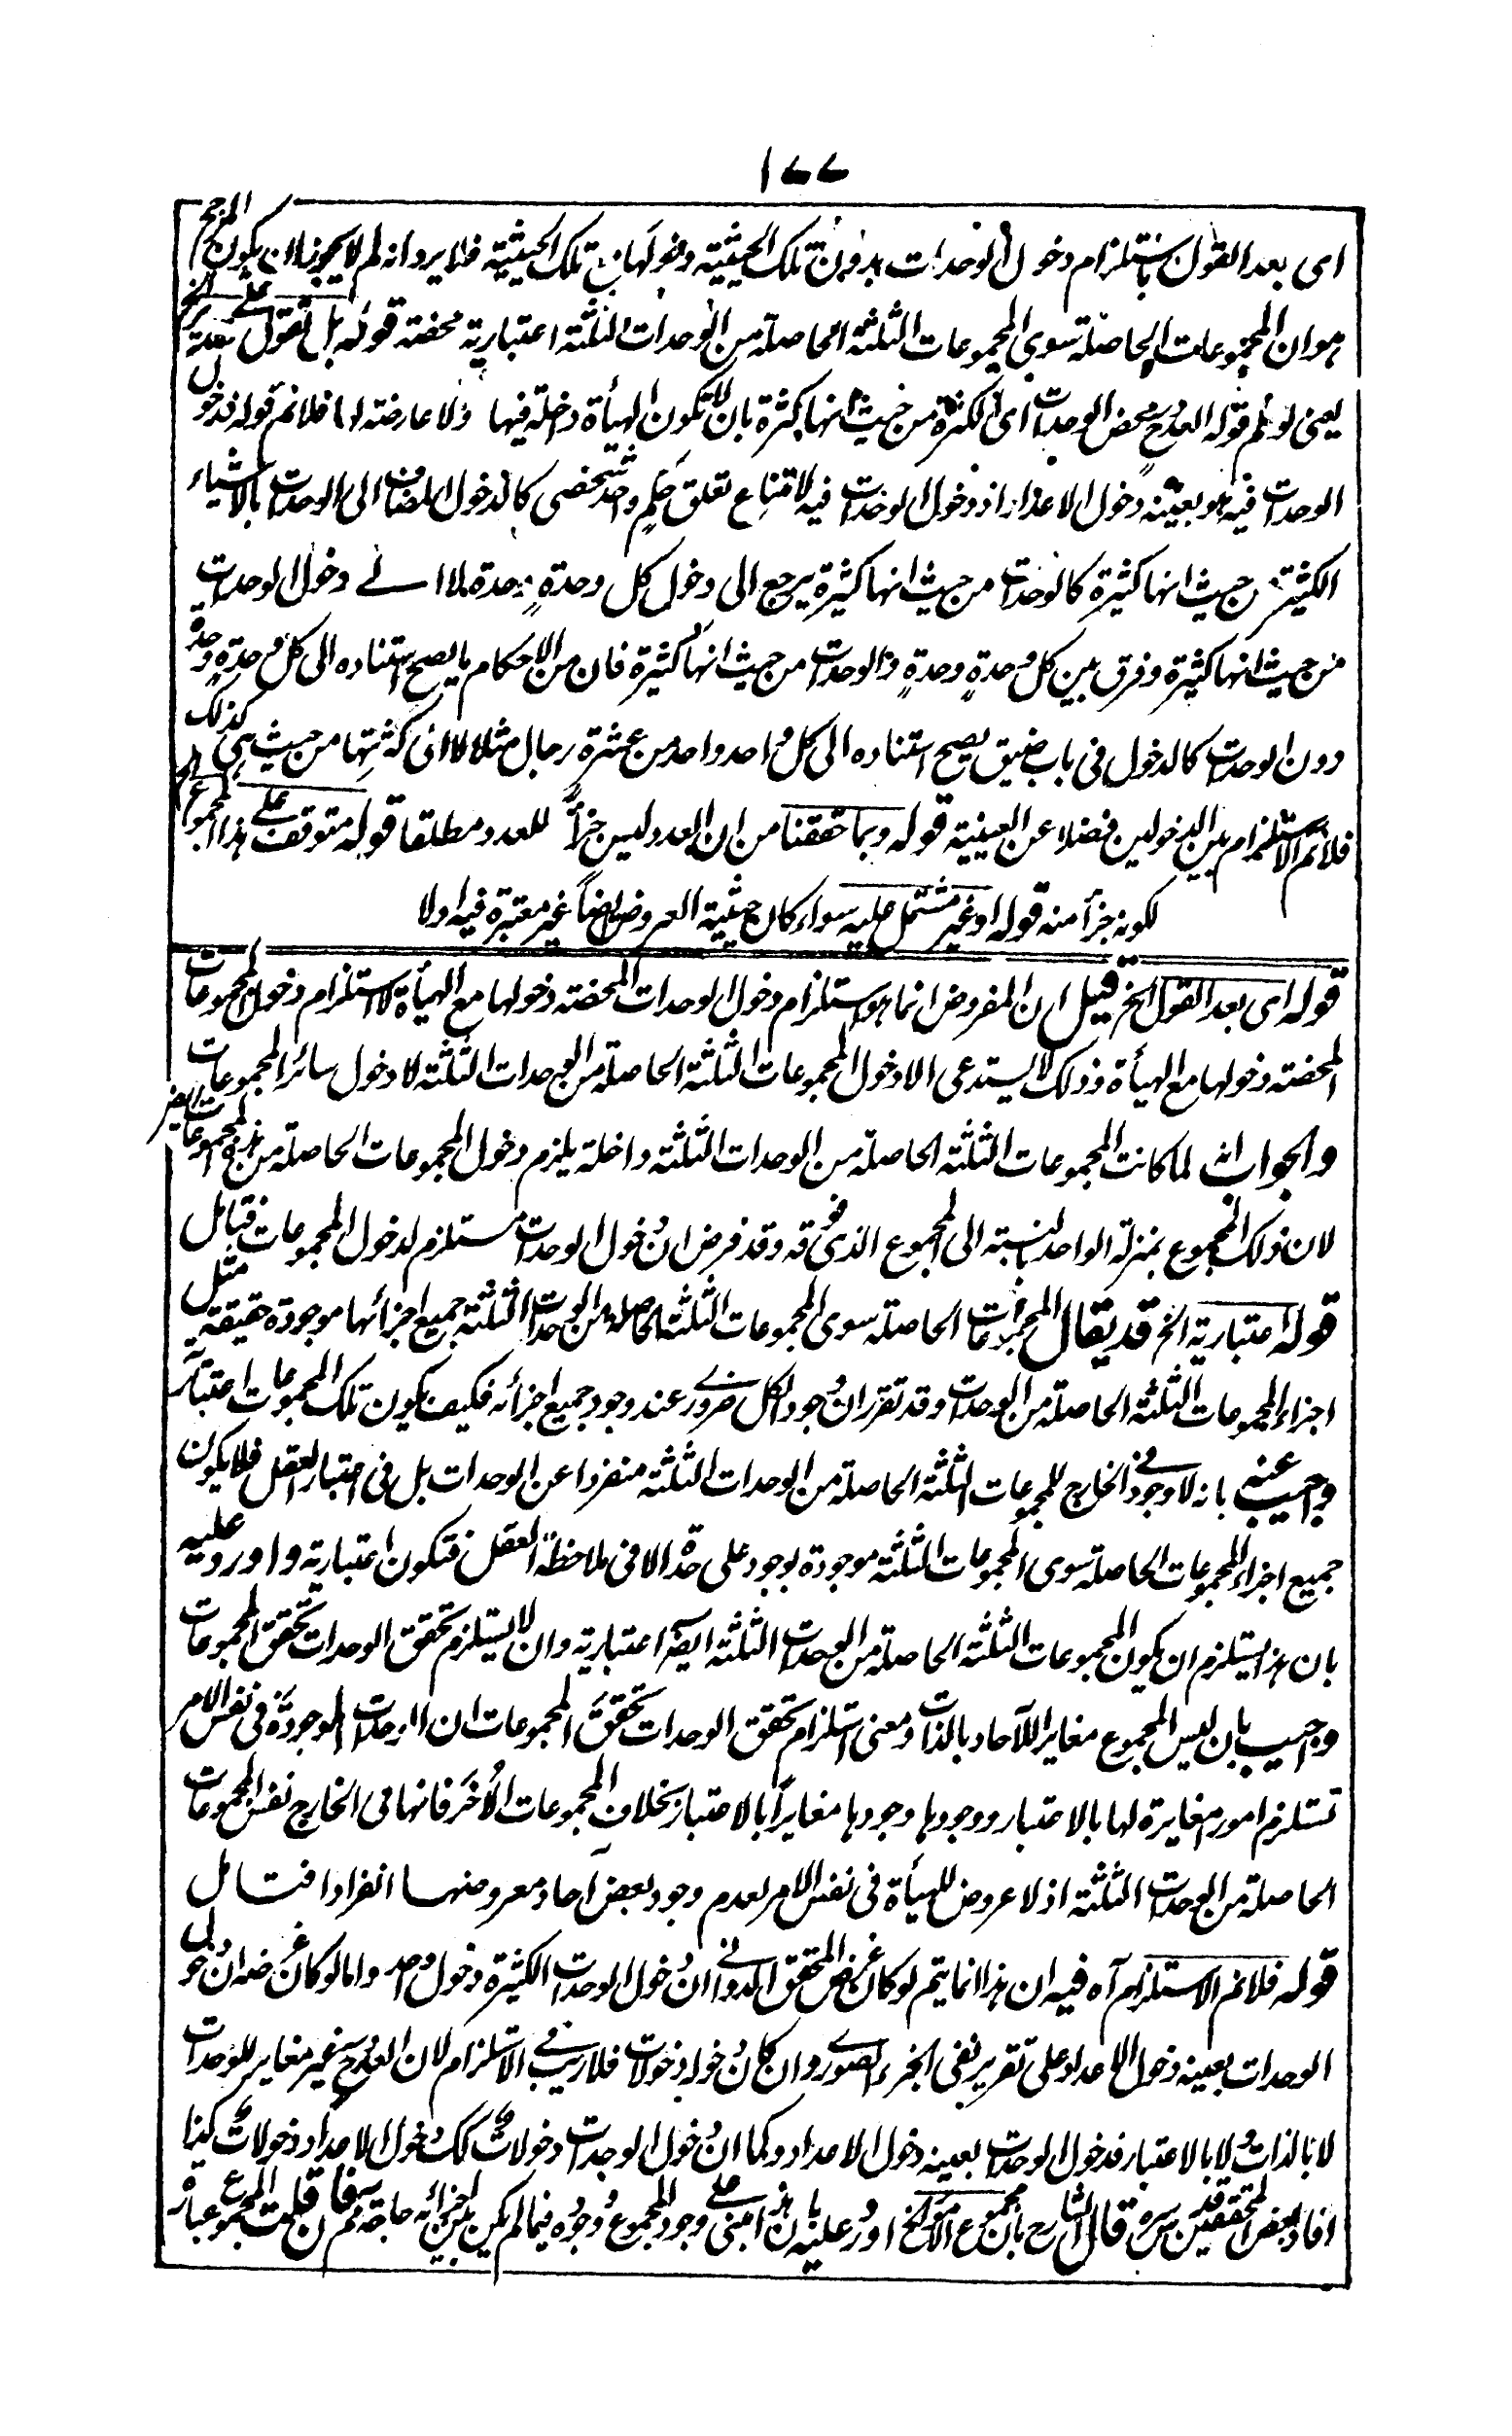 ١٧٧
اى بعد القول باستلزام دخول الوحدات بدون تلك الحيثية دخولها مع تلك الحيثية فلا يرد انه لم لا يجوز ان يكون المرجح
هو ان المجموعات الحاصلة سوى المجموعات الثلثة الحاصلة من الوحدات الثلثة اعتبارية محضة قوله بل نقول على تقدير الخ
يعنى لو تم قوله العدد محض الوحدات اى الكثرة من حيث انها كثرة بان لا تكون الهيأة داخلة فيها ولا عارضة لها فلا نم قوله فدخول
الوحدات فيه هو بعينه دخول الاعداد اذ دخول الوحدات فيه لامتناع تعلق حكم واحد شخصى كالدخول المضاف الى الوحدات بالاشياء
الكثيرة من حيث انها كثيرة كالوحدات من حيث انها كثيرة يرجع الى دخول كل وحدةٍ وحدة لا الى دخول الوحدات
من حيث انها كثيرة وفرق بين كل وحدةٍ وحدةٍ والوحدات من حيث انها كثيرة فان من الاحكام ما يصح استناده الى كل وحدةٍ وحدة
دون الوحدات كالدخول فى باب ضيق يصح استناده الى كل واحد واحد من عشرة رجال مثلا لا الى كثرتها من حيث هى كذلك
فلا نم الاستلزام بين الدخولين فضلا عن العينية قوله وبما حققنا من ان العدد ليس جزأً للعدد مطلقا قوله متوقف على هذا المجموع الخ
لكونه جزأ منه قوله او غير مشتمل عليه سواء كان حيثية العروض ايضاً غير معتبرة فيه اولا
قوله اى بعد القول الخ قيل ان المفروض انما هو استلزام دخول الوحدات المحضة دخولها مع الهيأة لا استلزام دخول المجموعات
المحضة دخولها مع الهيأة وذلك لا يستدعى الا دخول المجموعات الثلثة الحاصلة من الوحدات الثلثة لا دخول سائر المجموعات
والجواب انه لما كانت المجموعات الثلثة الحاصلة من الوحدات الثلثة داخلة يلزم دخول المجموعات الحاصلة من هذه المجموعات ايضر
لان ذلك المجموع بمنزلة الواحد بالنسبة الى المجموع الذى فوقه وقد فرض ان دخول الوحدات مستلزم لدخول المجموعات فتامل
قوله اعتبارية الخ قد يقال المجموعات الحاصلة سوى المجموعات الثلثة الحاصلة من الوحدات الثلثة جميع اجزائها موجودة حقيقة مثل
اجزاء المجموعات الثلثة الحاصلة من الوحدات وقد تقرر ان وجود الكل ضرورى عند وجود جميع اجزائه فكيف يكون تلك المجموعات اعتبارية
واجيب عنه بانه لا وجود فى الخارج للمجموعات الثلثة الحاصلة من الوحدات الثلثة منفردا عن الوحدات بل فى اعتبار العقل فلا يكون
جميع اجزاء المجموعات الحاصلة سوى المجموعات الثلثة موجودة بوجود على حدة الا فى ملاحظة العقل فتكون اعتبارية واورد عليه
بان هذا يستلزم ان يكون المجموعات الثلثة الحاصلة من الوحدات الثلثة ايضاً اعتبارية وان لا يستلزم تحقق الوحدات تحقق المجموعات
واجيب بان ليس المجموع مغايرا للآحاد بالذات ومعنى استلزام تحقق الوحدات تحقق المجموعات ان الوحدات الموجودة فى نفس الامر
تستلزم امورا مغايرة لها بالاعتبار ووجودها وجودها مغايراً بالاعتبار بخلاف المجموعات الأخر فانها فى الخارج نفس المجموعات
الحاصلة من الوحدات الثلثة اذ لا عروض للهيأة فى نفس الامر لعدم وجود بعض آحاد معروضها انفرادا فتامل
قوله فلا نم الاستلزام آه فيه ان هذا انما يتم لو كان غرض المحقق الدوانى ان دخول الوحدات الكثيرة دخول واحد واما لو كان غرضه ان دخول
الوحدات بعينه دخول الاعداد لو على تقرير نفى الجزء الصورى وان كان دخوله دخولات فلا ريب فى الاستلزام لان العدد ح غير مغاير للوحدات
لا بالذات ولا بالاعتبار فدخول الوحدات بعينه دخول الاعداد وكما ان دخول الوحدات دخولات كك دخول الاعداد دخولات كذا
افاد بعض المحققين قدس سره قال الشارح بان مجموع الامور الخ اورد عليه بان هذا مبنى على وجود المجموع ووجوده فيما لم يكن بين اجزائه حاجة مم فان قلت المجموع عبارة